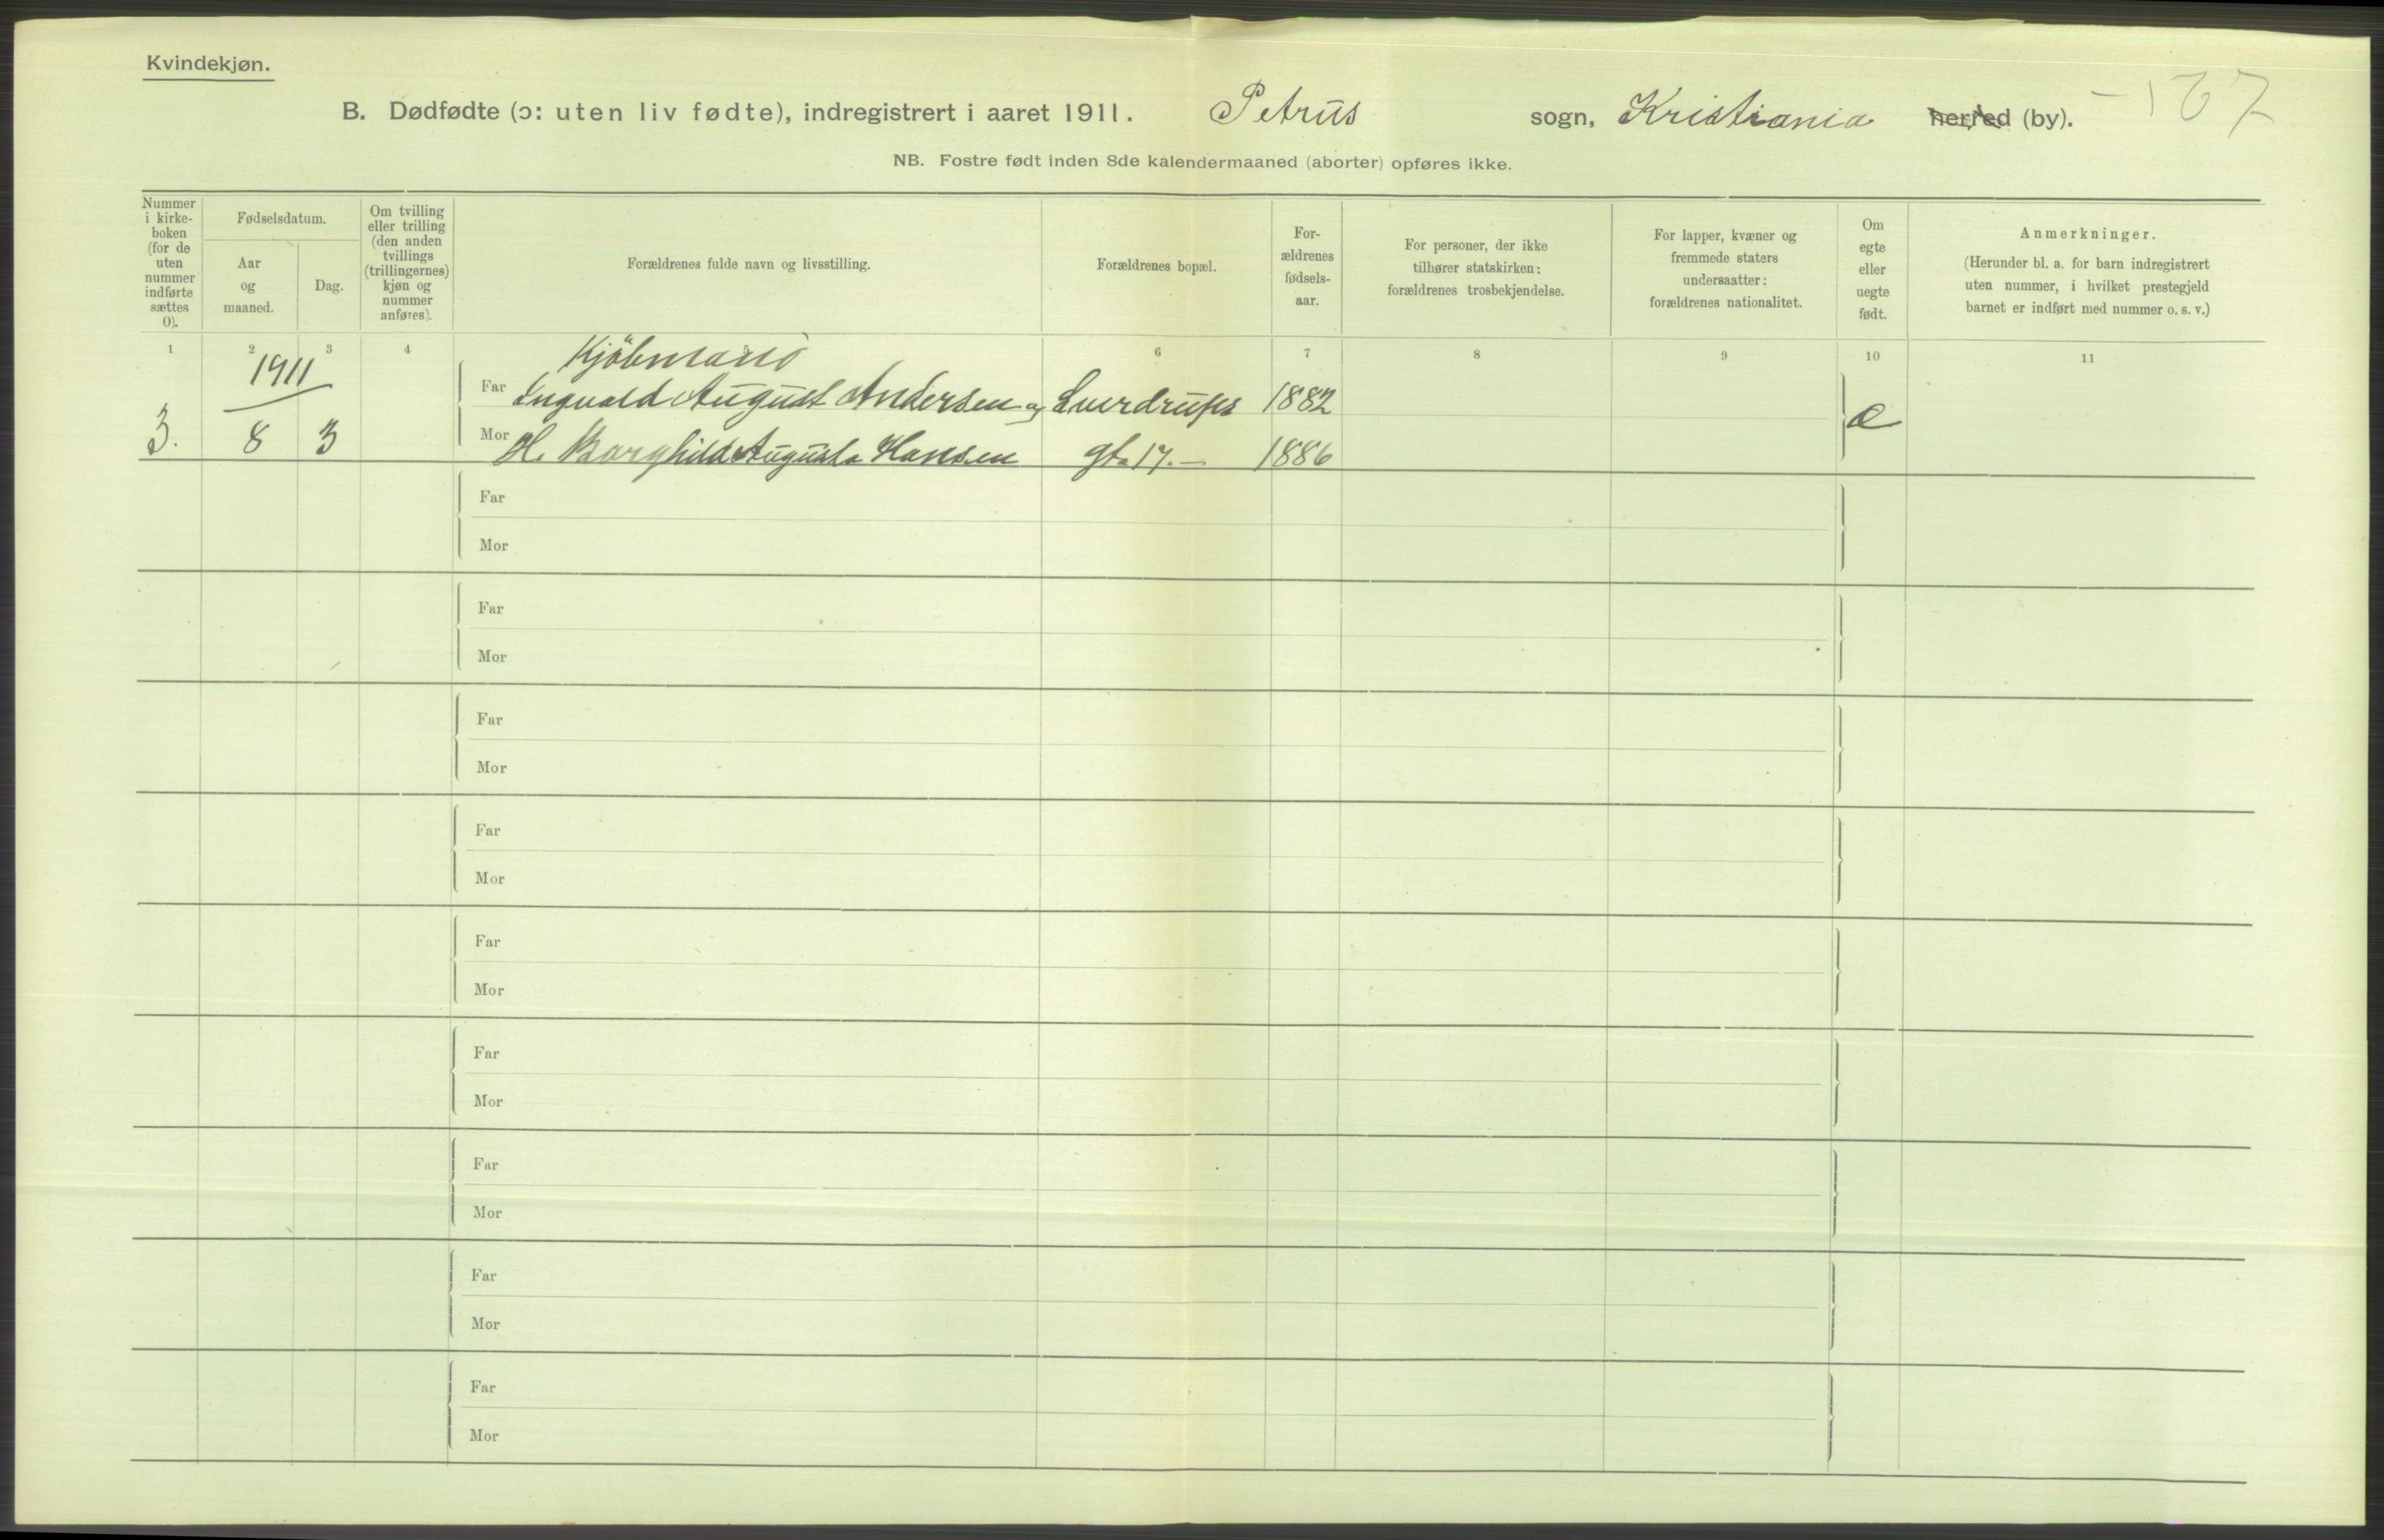 Kvindekjøn.
B. Dødfødte (ɔ: uten liv fødte), indregistrert i aaret 1911. Petrus sogn, Kristiania herred (by). 167
NB. Fostre født inden 8de kalendermaaned (aborter) opføres ikke.
Nummer i kirke-boken (for de uten nummer indførte sættes 0).
Fødselsdatum.
Aar og maaned.
Dag.
Om tvilling eller trilling (den anden tvillings (trillingernes) kjøn og nummer anføres).
Forældrenes fulde navn og livsstilling.
Forældrenes bopæl.
For-ældrenes fødsels-aar.
For personer, der ikke tilhører statskirken: forældrenes trosbekjendelse.
For lapper, kvæner og fremmede staters undersaatter: forældrenes nationalitet.
Om egte eller uegte født.
Anmerkninger.
(Herunder bl. a. for barn indregistrert uten nummer, i hvilket prestegjeld barnet er indført med nummer o. s. v.)
1 2 3 4 5 6 7 8 9 10 11
1911 Kjöbmand
Far Ingvald August Andersen og Sverdrups 1882
3. 8 3 Mor H. Borghild Augusta Hansen gt. 17. — 1886 e
Far
Mor
Far
Mor
Far
Mor
Far
Mor
Far
Mor
Far
Mor
Far
Mor
Far
Mor
Far
Mor